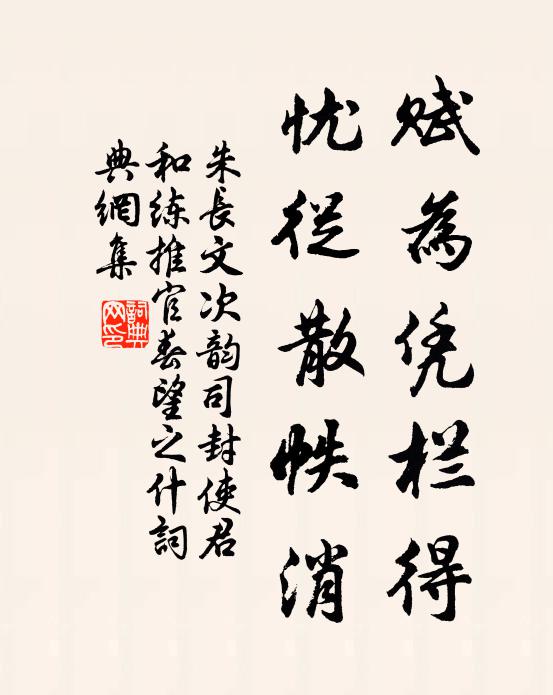 赋為凭栏得
忧從散帙消
朱長文次韵司封使君
和练推官春望之什詞
典網集
詞典網印